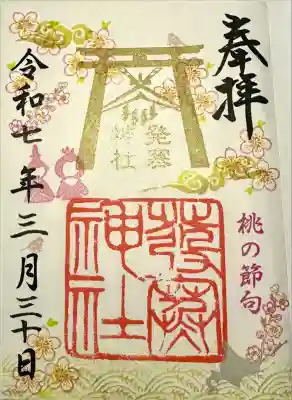 奉拝
発寒
神社
桃の節句
發寒
神社
令和七年三月三十日